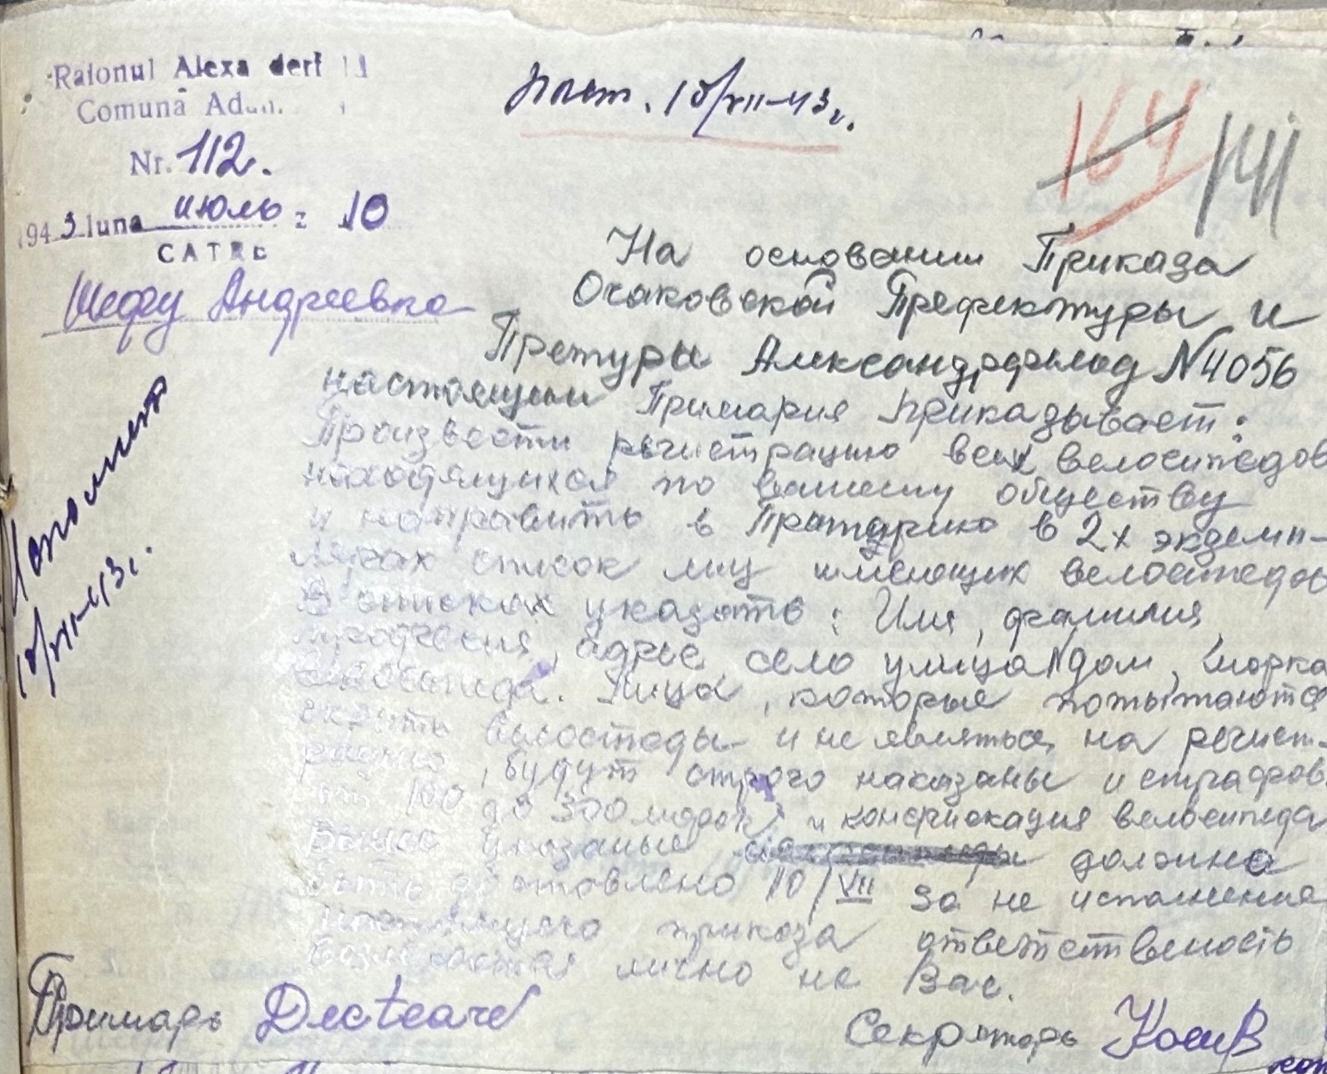 Raionul Alexa derf
Comună Adun.
Nr. 112.
1943 luna июль z 10
CATRE
Шефу Андреевка
Пост. 10/VII-43г.
164 141
На основании Приказа
Очаковской Префектуры и
Претуры Александрфельд N 4056
настоящим Примария приказывает:
Произвести регистрацию всех велосипедов
находящихся по вашему обществу
и направить в Претурию в 2х экземп-
лярах список лиц имеющих велосипеды
В списках указать: Имя, фамилия
адрес село улица N дом, марка
велосипеда. Лица, которые попытаются
скрыть велосипеды и не являться, на регист-
рацию, будут строго наказаны и страфов.
от 100 до 300 марок и конфискация велосипеда
Выше указаные должно
быть доставлено 10/VII За не исполнение
настоящего приказа ответственость
лично на Вас.
Примарь
Секретарь
Исполнено
10/VII-43г.